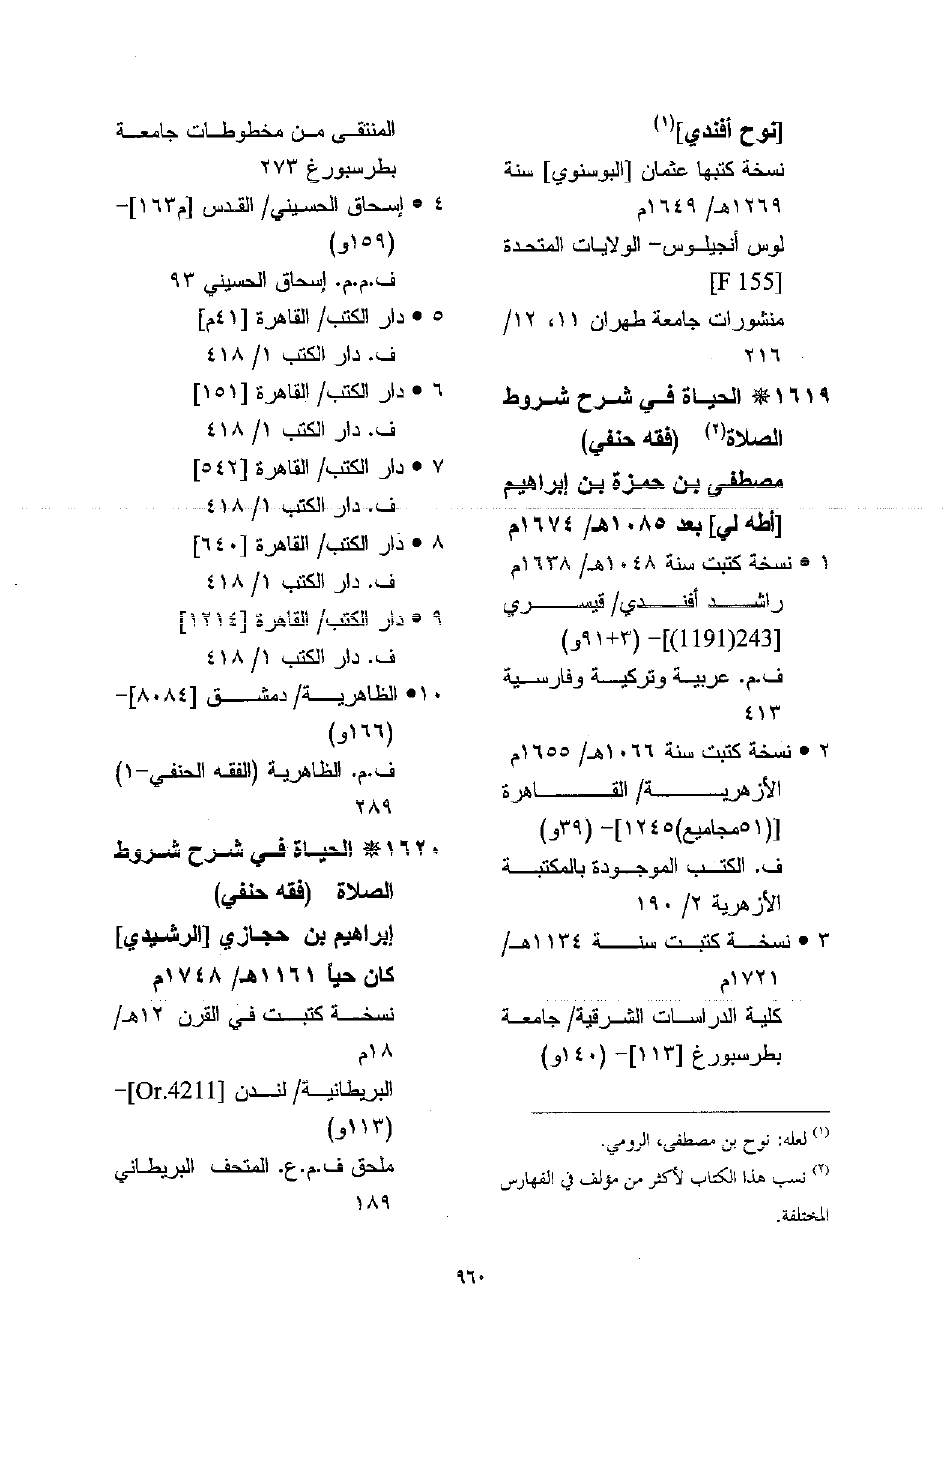 [نوح أفندي](١)
نسخة كتبها عثمان [البوسنوي] سنة
١٢٦٩هـ/ ١٦٤٩م
لوس أنجيلوس- الولايات المتحدة
[F 155]
منشورات جامعة طهران ١١، ١٢/
٢١٦
١٦١٩* الحياة في شرح شروط
الصلاة(٢) (فقه حنفي)
مصطفى بن حمزة بن إبراهيم
[أطه لي] بعد ١٠٨٥هـ/ ١٦٧٤م
١ • نسخة كتبت سنة ١٠٤٨هـ/ ١٦٣٨م
راشد أفندي/ قيسري
[243(1191)]- (٣+٩١و)
ف.م. عربية وتركية وفارسية
٤١٣
٢ • نسخة كتبت سنة ١٠٦٦هـ/ ١٦٥٥م
الأزهرية/ القاهرة
[(٥١مجاميع)١٢٤٥]- (٣٩و)
ف. الكتب الموجودة بالمكتبة
الأزهرية ٢/ ١٩٠
٣ • نسخة كتبت سنة ١١٣٤هـ/
١٧٢١م
كلية الدراسات الشرقية/ جامعة
بطرسبورغ [١١٣]- (١٤٠و)
(١) لعله: نوح بن مصطفى، الرومي.
(٢) نسب هذا الكتاب لأكثر من مؤلف في الفهارس
المختلفة.
المنتقى من مخطوطات جامعة
بطرسبورغ ٢٧٣
٤ • إسحاق الحسيني/ القدس [م١٦٣]-
(١٥٩و)
ف.م.م. إسحاق الحسيني ٩٣
٥ • دار الكتب/ القاهرة [٤١م]
ف. دار الكتب ١/ ٤١٨
٦ • دار الكتب/ القاهرة [١٥١]
ف. دار الكتب ١/ ٤١٨
٧ • دار الكتب/ القاهرة [٥٤٢]
ف. دار الكتب ١/ ٤١٨
٨ • دار الكتب/ القاهرة [٦٤٠]
ف. دار الكتب ١/ ٤١٨
٩ • دار الكتب/ القاهرة [١٢١٤]
ف. دار الكتب ١/ ٤١٨
١٠• الظاهرية/ دمشق [٨٠٨٤]-
(١٦٦و)
ف.م. الظاهرية (الفقه الحنفي-١)
٢٨٩
١٦٢٠* الحياة في شرح شروط
الصلاة (فقه حنفي)
إبراهيم بن حجازي [الرشيدي]
كان حياً ١١٦١هـ/ ١٧٤٨م
نسخة كتبت في القرن ١٢هـ/
١٨م
البريطانية/ لندن [Or.4211]-
(١١٣و)
ملحق ف.م.ع. المتحف البريطاني
١٨٩
٩٦٠